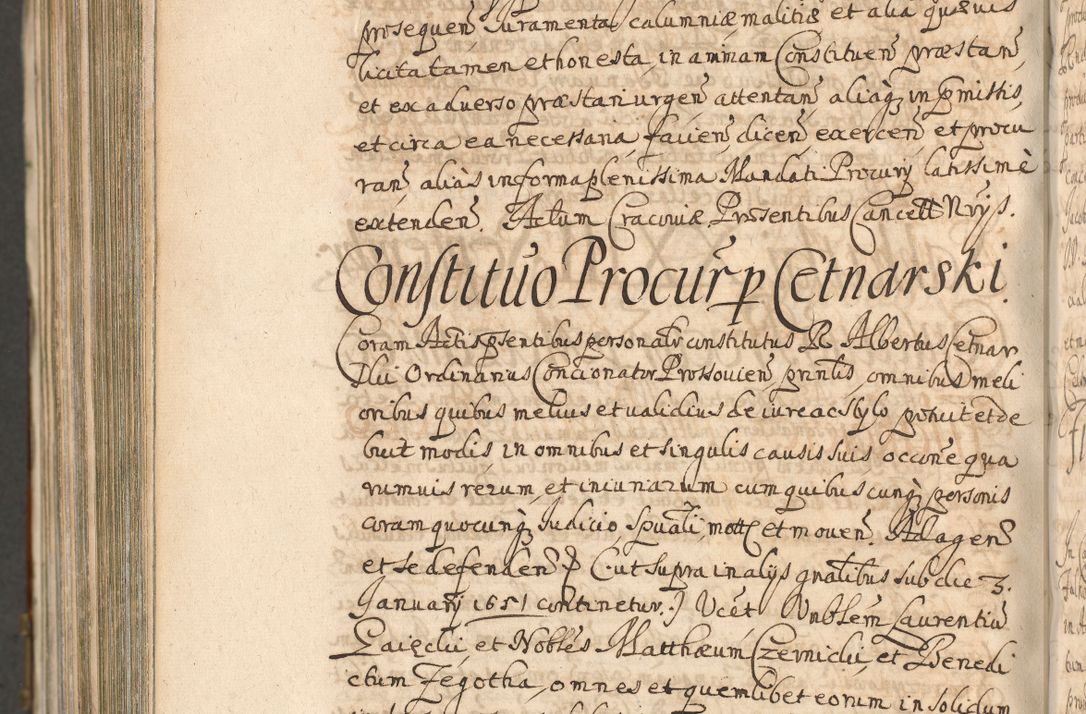 prosequen̄ Iuramenta calumniæ malitiæ et alia quævis
licita tamen et honesta, in animam Constituen̄ præstan̄,
et ex adverso præstari urgen̄ attentan̄ aliaq₃ in p̄missis,
et circa ea necessaria, facien̄ dicen̄ exercen̄ et procu
ran̄ aliàs in forma plenissima Mandati Procurÿ latissimè
extenden̄. Actum Cracoviæ Præsentibus Cancell Nrÿs.
Constituo Procur̄ p Cetnarski.
Coram Actis p̄sentibus personalr̄ constitutus R Albertus Cetnar
Ordinarius Concionator Prossovicen̄ omnibus meli
oribus quibus melius et validius de iure ac stylo potuit et de
buit modis in omnibus et singulis causis suis occōne qua
rumvis rerum et iniuriarum cum quibuscunq₃ personis
coram quocunq₃ Iudicio, Sp̄uali, mott̄ et moven̄. Ad agen̄
et se defenden̄ &c (ut supra in alijs gn̄alibus sub die 3.
Januarÿ 1651 continetur.) Vc̄et Laurentiū
et Nobles Matthæum Czernicki, et Benedi
ctum Zegotha, omnes et quemlibet eorum in solidum